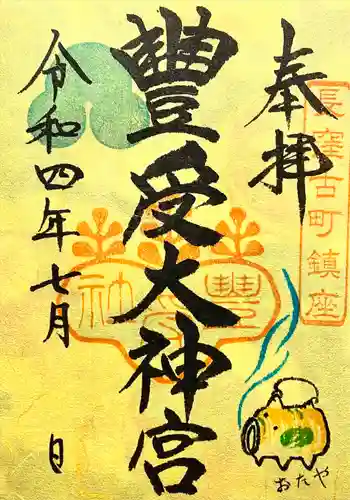 奉拝
長窪古町鎮座
豐受大神宮
令和四年七月 日
おたや